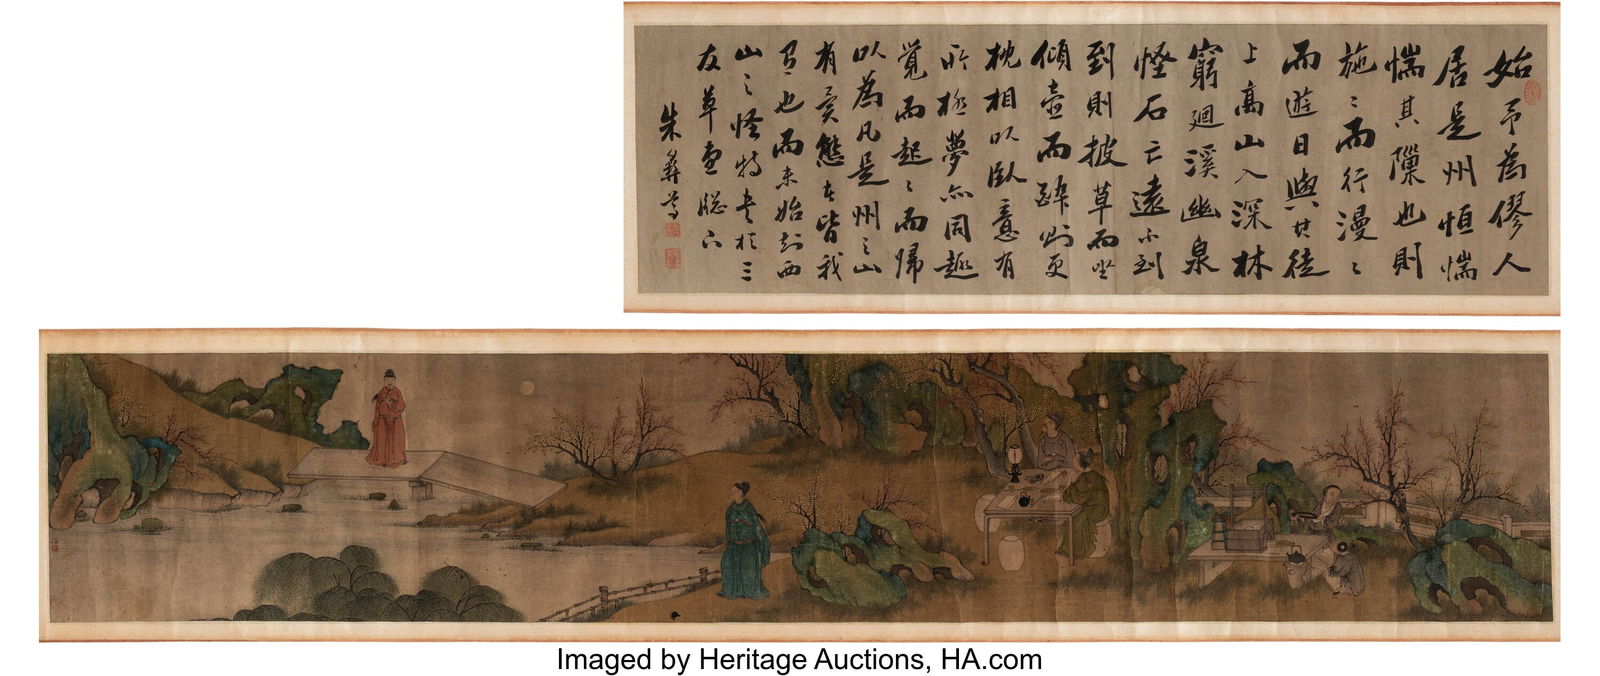 始予為僇人
居是州恒惴
惴其隟也則
施〻而行漫〻
而遊日與其徒
上高山入深林
窮迴溪幽泉
怪石亡遠不到
到則披草而坐
傾壺而醉則更
枕相以臥意有
所極夢亦同趣
覺而起〻而歸
以為凡是州之山
有異態者皆我
有也而未始知西
山之怪特書於三
友草堂
朱彝尊
Imaged by Heritage Auctions, HA.com